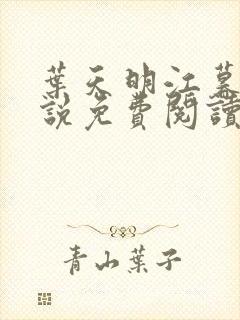 葉天明江暮
說免費閱讀
青山葉子